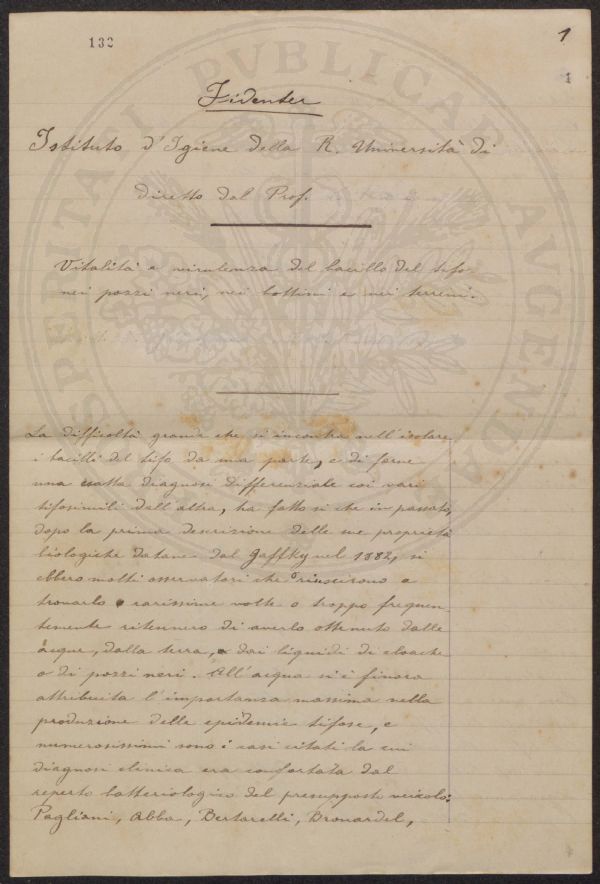 132
1
1
Fidenter
Istituto d'Igiene della R. Università di
diretto dal Prof.
Vitalità e virulenza del bacillo del tifo
nei pozzi neri, nei bottini e nei terreni.
La difficoltà grande che si incontra nell'isolare
i bacilli del tifo da una parte, e di farne
una esatta diagnosi differenziale coi vari
tifosimili dall'altra, ha fatto sì che in passato,
dopo la prima descrizione delle sue proprietà
biologiche datane dal Gaffky nel 1882, si
ebbero molti osservatori che o riuscirono a
trovarlo rarissime volte o troppo frequen
temente ritennero di averlo ottenuto dalle
acque, dalla terra, dai liquidi di cloache
o di pozzi neri. All'acqua si è finora
attribuita l'importanza massima nella
produzione delle epidemie tifose, e
numerosissimi sono i casi citati la cui
diagnosi clinica era confortata dal
reperto batteriologico del presupposto veicolo:
Pagliani, Abba, Bertarelli, Brouardel,
PVBLICAE AVGENDAE